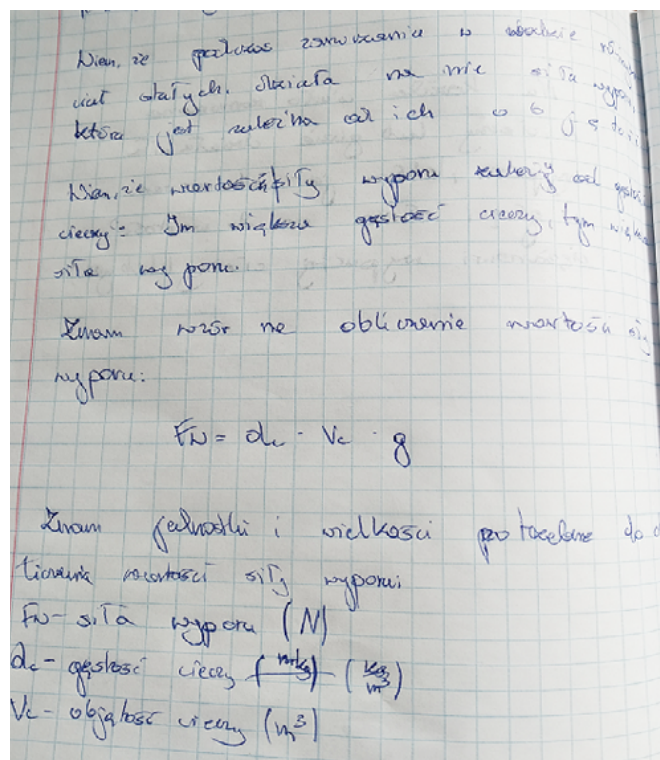 Wiem, że podczas zanurzania w wodzie
ciał stałych, działa na nie siła wypo
która jest zależna od ich o b ję to
Wiem, że wartość siły wyporu zależy od gęstoś
cieczy: Im większa gęstość cieczy, tym więk
siła wy poru.
Znam wzór na obliczenie wartości siły
wyporu:
FW = dc · Vc · g
Znam jednostki i wielkości potrzebne do o
liczenia wartości siły wyporu:
FW - siła wyporu (N)
dc - gęstość cieczy (kg/m³)
Vc - objętość cieczy (m³)